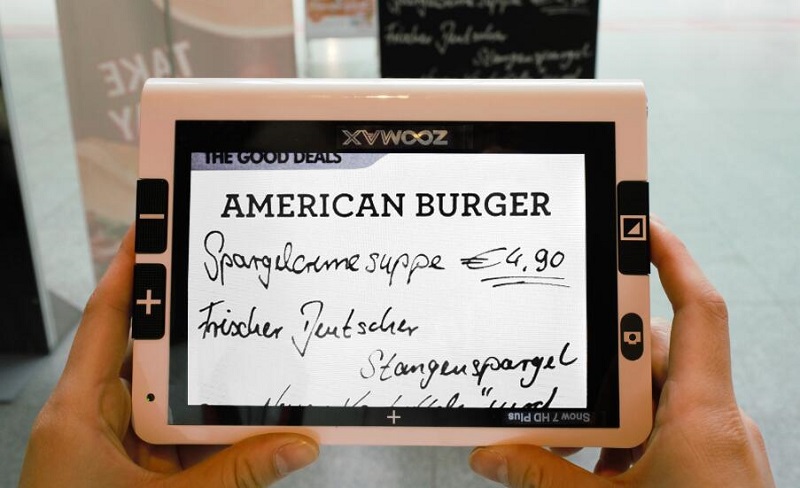 Spargelcremesuppe
Frischer Deutscher
Stangenspargel
TAKE
ZOOMAX
THE GOOD DEALS
AMERICAN BURGER
Spargelcremesuppe €4,90
Frischer Deutscher
Stangenspargel
und
Snow 7 HD Plus